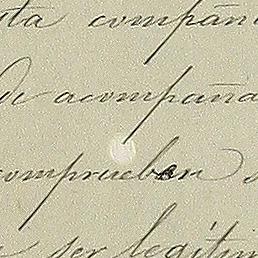 ta compañ
de acompaña
comprueban
ser legítim